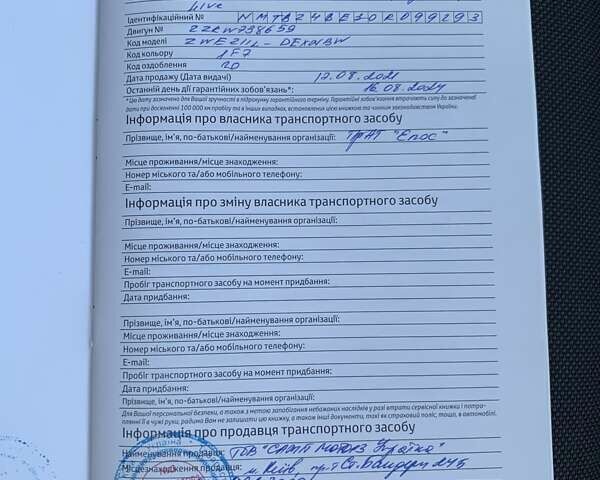 Live
Ідентифікаційний № NMTBZ4BE10R099293
Двигун № 2ZRW738659
Код моделі ZWE211L-DEXNBW
Код кольору 1F7
Код оздоблення 20
Дата продажу (Дата видачі) 17.08.2021
Останній день дії гарантійних зобов'язань*: 16.08.2024
*Цю дату зазначено для Вашої зручності в підрахунку гарантійного терміну. Гарантійні зобов'язання втрачають силу до зазначеної
дати при досягненні 100 000 км пробігу та в інших випадках, встановлених цією книжкою та чинним законодавством України.
Інформація про власника транспортного засобу
Прізвище, ім'я, по-батькові/найменування організації: ПрАТ "Епос"
Місце проживання/місце знаходження:
Номер міського та/або мобільного телефону:
E-mail:
Інформація про зміну власника транспортного засобу
Прізвище, ім'я, по-батькові/найменування організації:
Місце проживання/місце знаходження:
Номер міського та/або мобільного телефону:
E-mail:
Пробіг транспортного засобу на момент придбання:
Дата придбання:
Прізвище, ім'я, по-батькові/найменування організації:
Місце проживання/місце знаходження:
Номер міського та/або мобільного телефону:
E-mail:
Пробіг транспортного засобу на момент придбання:
Дата придбання:
Прізвище, ім'я, по-батькові/найменування організації:
Для Вашої персональної безпеки, а також з метою запобігання небажаних наслідків у разі втрати сервісної книжки і потра-
плянні її в чужі руки, радимо Вам не залишати цю книжку, а також інші документи, такі як страховий поліс, тощо, в автомобілі.
Інформація про продавця транспортного засобу
Найменування продавця: ТОВ "САМІТ МОТОРЗ Україна"
Місцезнаходження продавця: м. Київ, пр-т Ст. Бандери 24Б
Україна